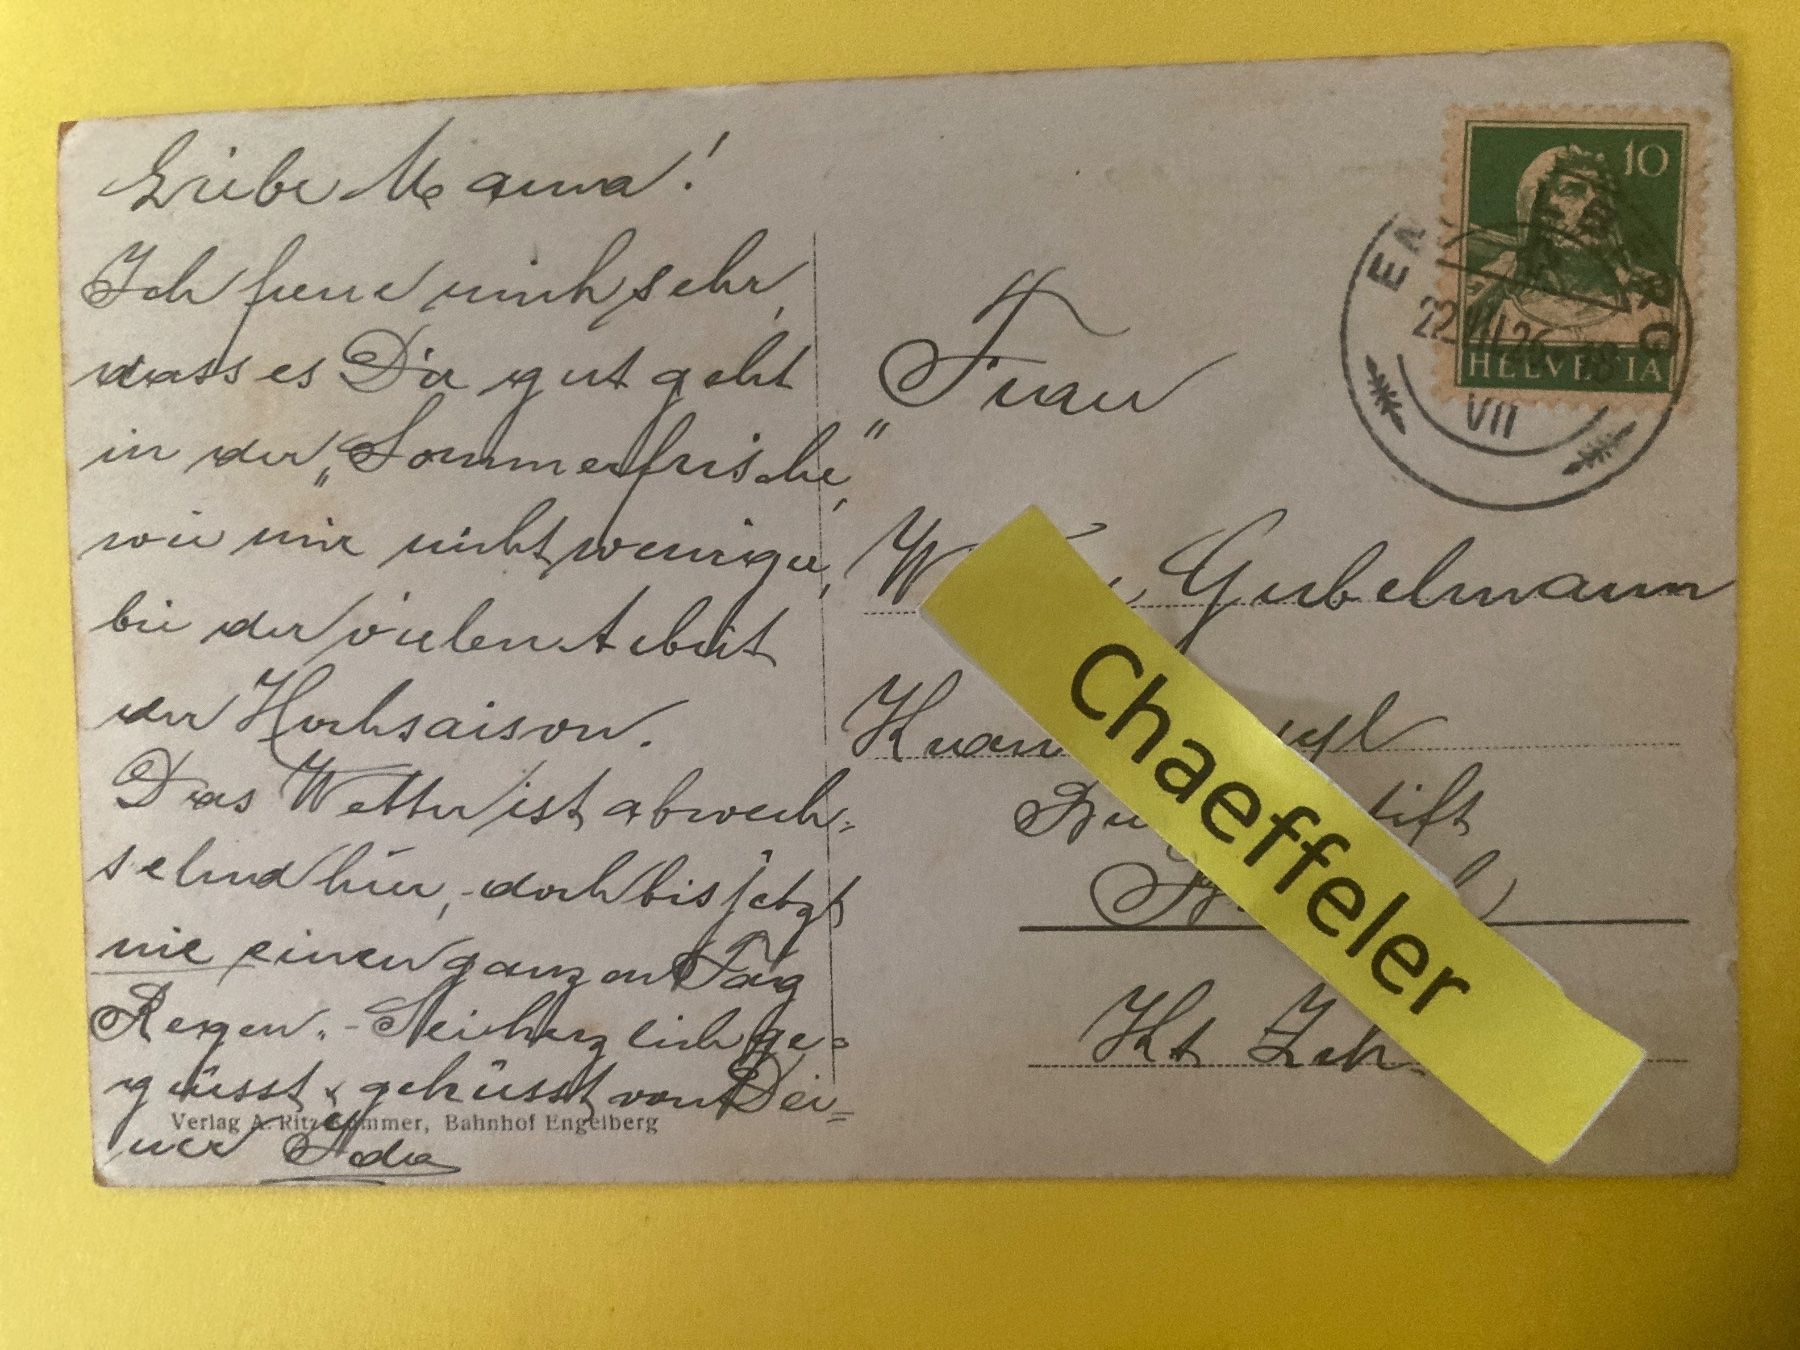 Liebe Mama!
Ich freue mich sehr,
dass es Dir gut geht
in der „Sommerfrische",
wie mir nicht weniger,
bei der vielen Arbeit
der Hochsaison.
Das Wetter ist abwech=
selnd hier, - doch bis jetzt
nie einen ganzen Tag
Regen. - Sei herzlich ge=
grüsst & geküsst von Dei=
ner Ida
Verlag A. Ritz-Kummer, Bahnhof Engelberg
10
HELVETIA
22 VII 26 - 18
VII
Frau
Gubelmann
Kt Zch.
Chaeffeler